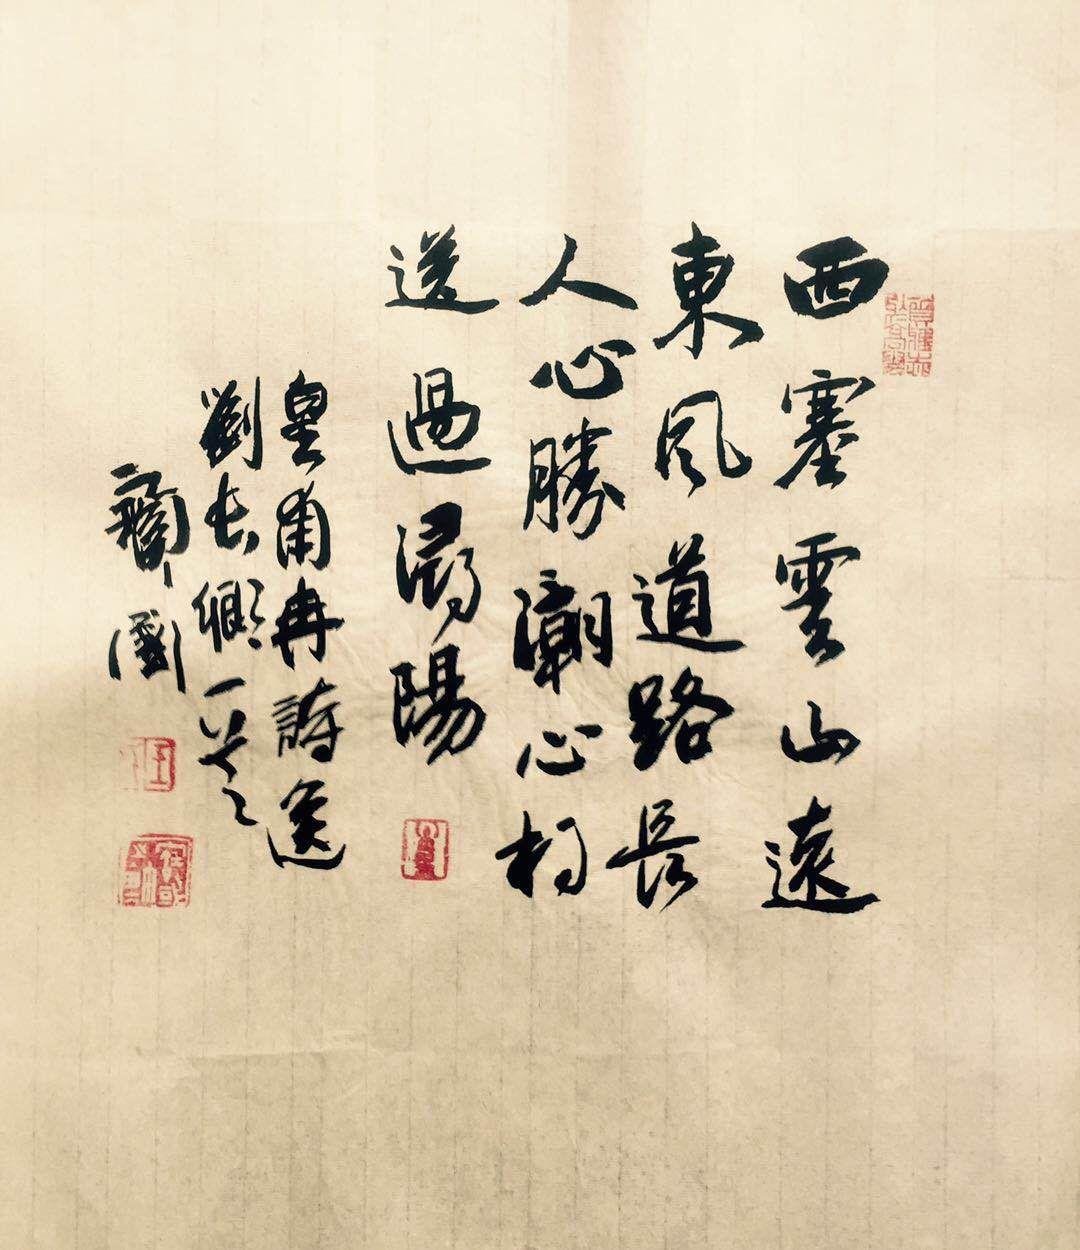 西塞雲山遠
東風道路長
人心勝潮心相
送過潯陽
皇甫冉詩送
劉長卿一首